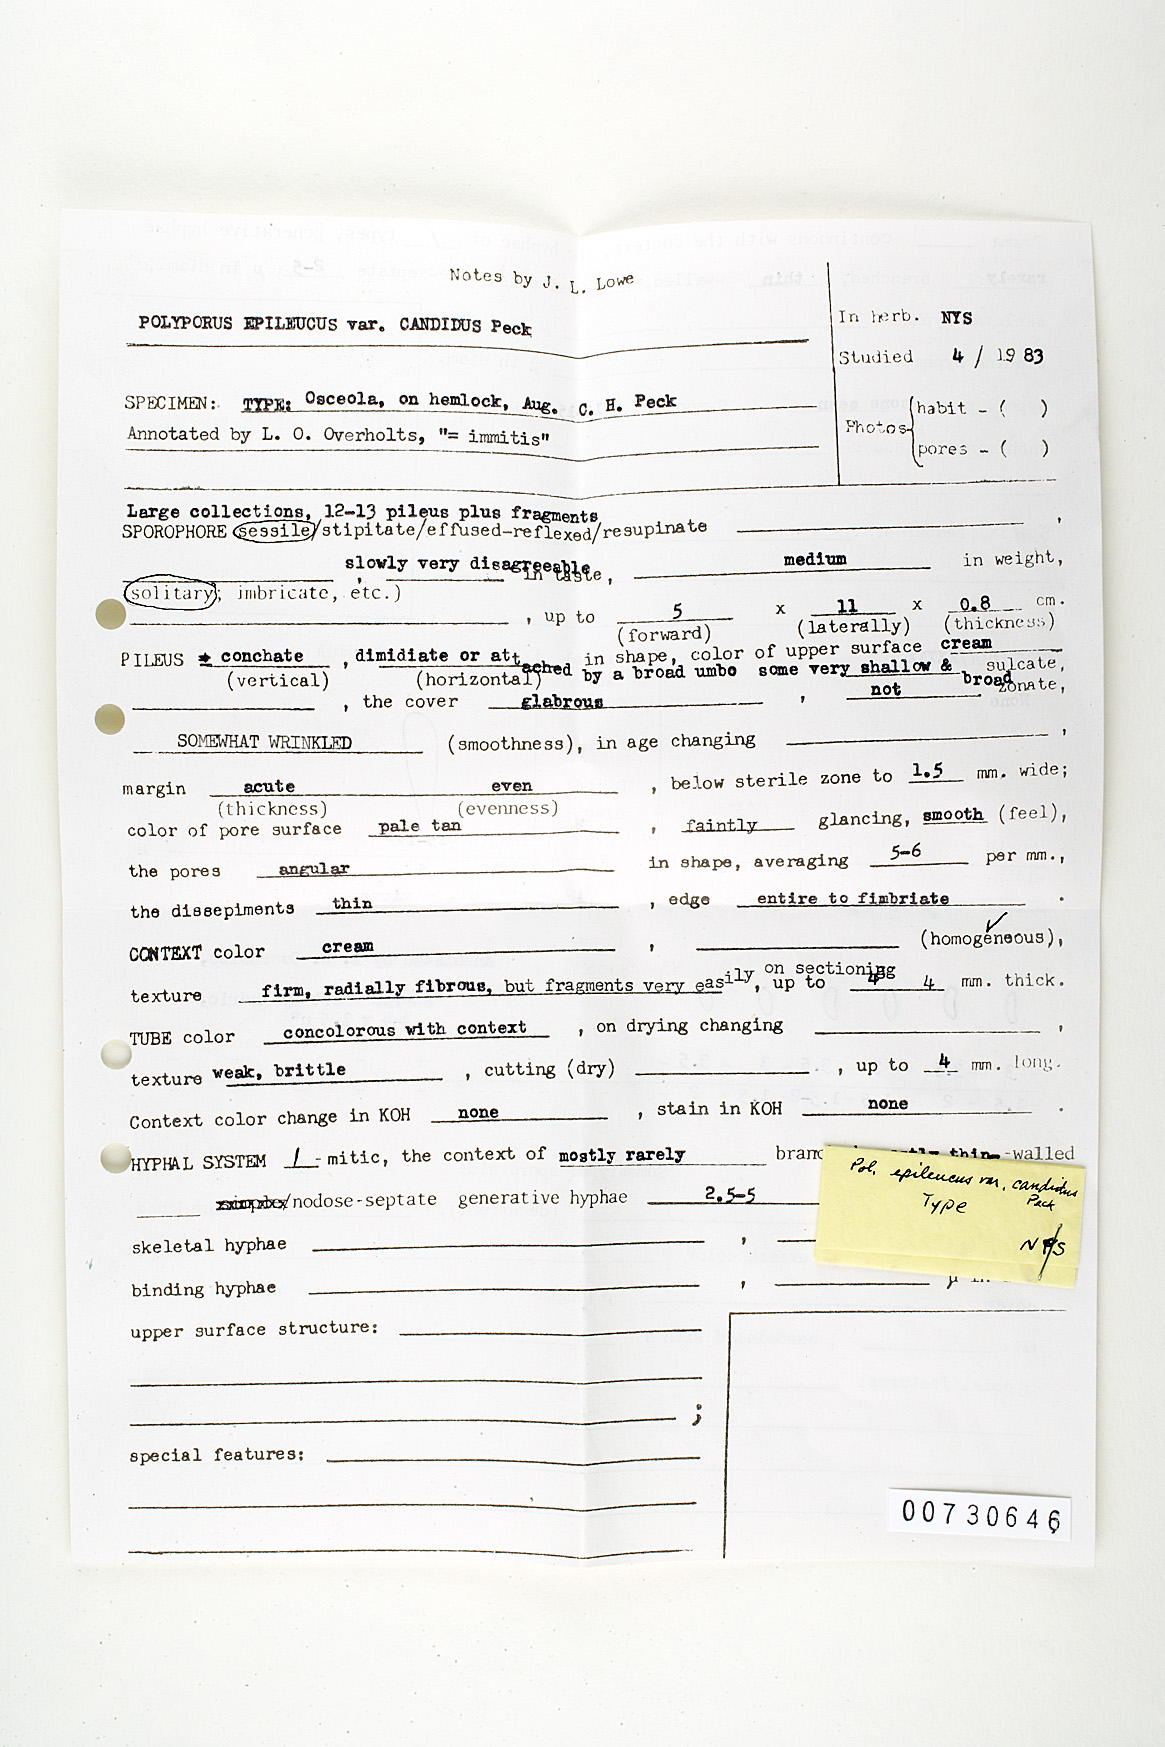 Notes by J. L. Lowe
POLYPORUS EPILEUCUS var. CANDIDUS Peck
In herb. NYS
Studied 4 / 19 83
SPECIMEN: TYPE: Osceola, on hemlock, Aug. C. H. Peck
Annotated by L. O. Overholts, "= immitis"
Photos habit - ( )
pores - ( )
Large collections, 12-13 pileus plus fragments
SPOROPHORE sessile/stipitate/effused-reflexed/resupinate ,
, slowly very disagreeable in taste, medium in weight,
(solitary, imbricate, etc.)
, up to 5 x 11 x 0.8 cm.
(forward) (laterally) (thickness)
PILEUS ± conchate , dimidiate or attached by a broad umbo in shape, color of upper surface cream
(vertical) (horizontal) some very shallow & broad sulcate,
, the cover glabrous , not zonate,
SOMEWHAT WRINKLED (smoothness), in age changing ,
margin acute even , below sterile zone to 1.5 mm. wide;
(thickness) (evenness)
color of pore surface pale tan , faintly glancing, smooth (feel),
the pores angular in shape, averaging 5-6 per mm.,
the dissepiments thin , edge entire to fimbriate .
CONTEXT color cream , ✓ (homogeneous),
texture firm, radially fibrous, but fragments very easily on sectioning, up to 4 4 mm. thick.
TUBE color concolorous with context , on drying changing ,
texture weak, brittle , cutting (dry) , up to 4 mm. long.
Context color change in KOH none , stain in KOH none .
HYPHAL SYSTEM 1 -mitic, the context of mostly rarely thin- -walled
/nodose-septate generative hyphae 2.5-5
skeletal hyphae ,
binding hyphae ,
upper surface structure:
;
special features:
Pol. epileucus var. candidus
Peck
Type
NYS
00730646